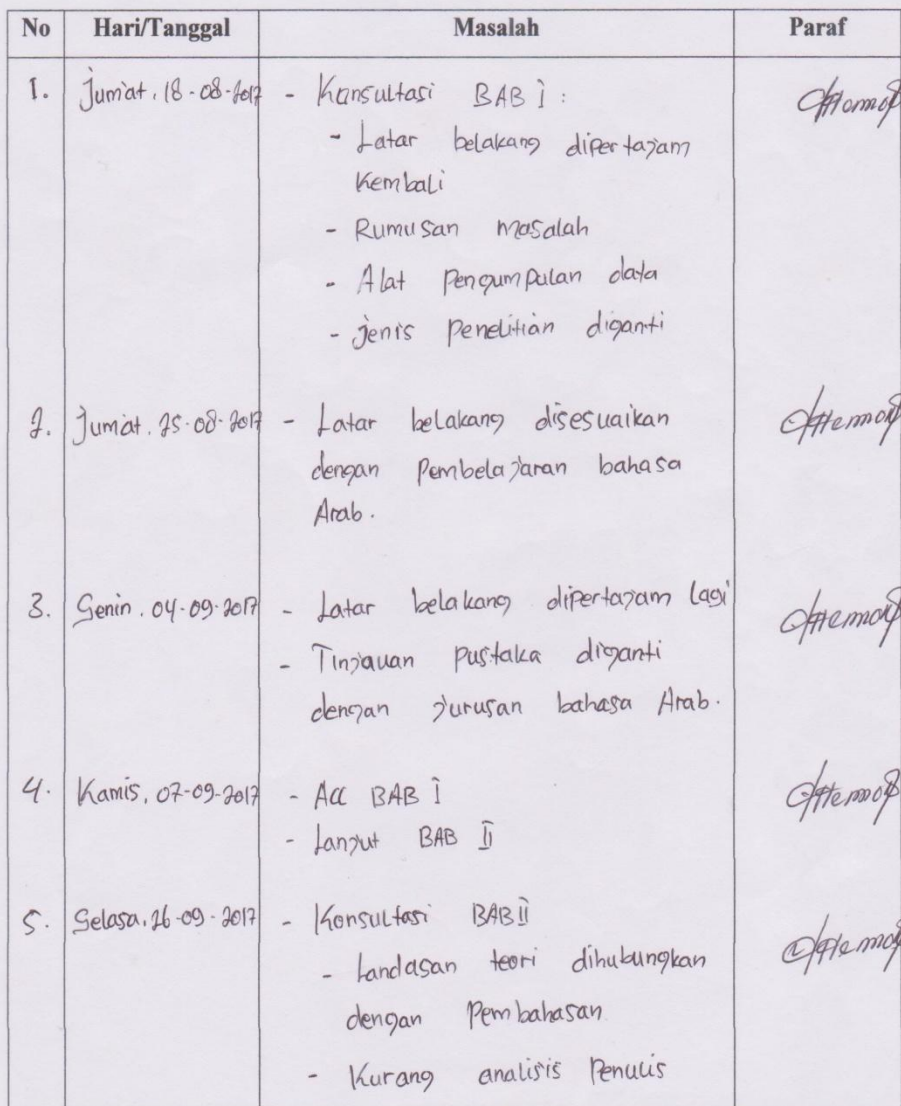 No Hari/Tanggal Masalah Paraf
1. Jum'at, 18-08-2017 - Konsultasi BAB I :
- Latar belakang dipertajam
kembali
- Rumusan masalah
- Alat pengumpulan data
- jenis penelitian diganti
2. Jum'at, 25-08-2017 - Latar belakang disesuaikan
dengan pembelajaran bahasa
Arab.
3. Senin, 04-09-2017 - Latar belakang dipertajam lagi
- Tinjauan pustaka diganti
dengan jurusan bahasa Arab.
4. Kamis, 07-09-2017 - Acc BAB I
- Lanjut BAB II
5. Selasa, 26-09-2017 - Konsultasi BAB II
- Landasan teori dihubungkan
dengan pembahasan
- Kurang analisis penulis